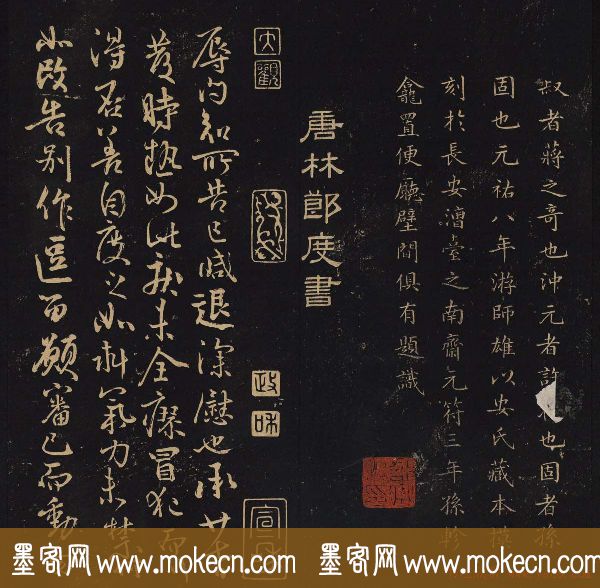 叔者蔣之奇也沖元者許也固者孫
固也元祐八年游師雄以安氏藏本摸
刻於長安漕臺之南齋元符三年孫軫
龕置便廳壁間俱有題識
唐林節度書
大觀
政和
辱問知所苦已減退深慰也承
發時熱如此兼未全療冒犯而
得在善自度之如料氣力未禁
改告別作願審己而動
墨客网 www.mokecn.com
墨客网 www.mokecn.com